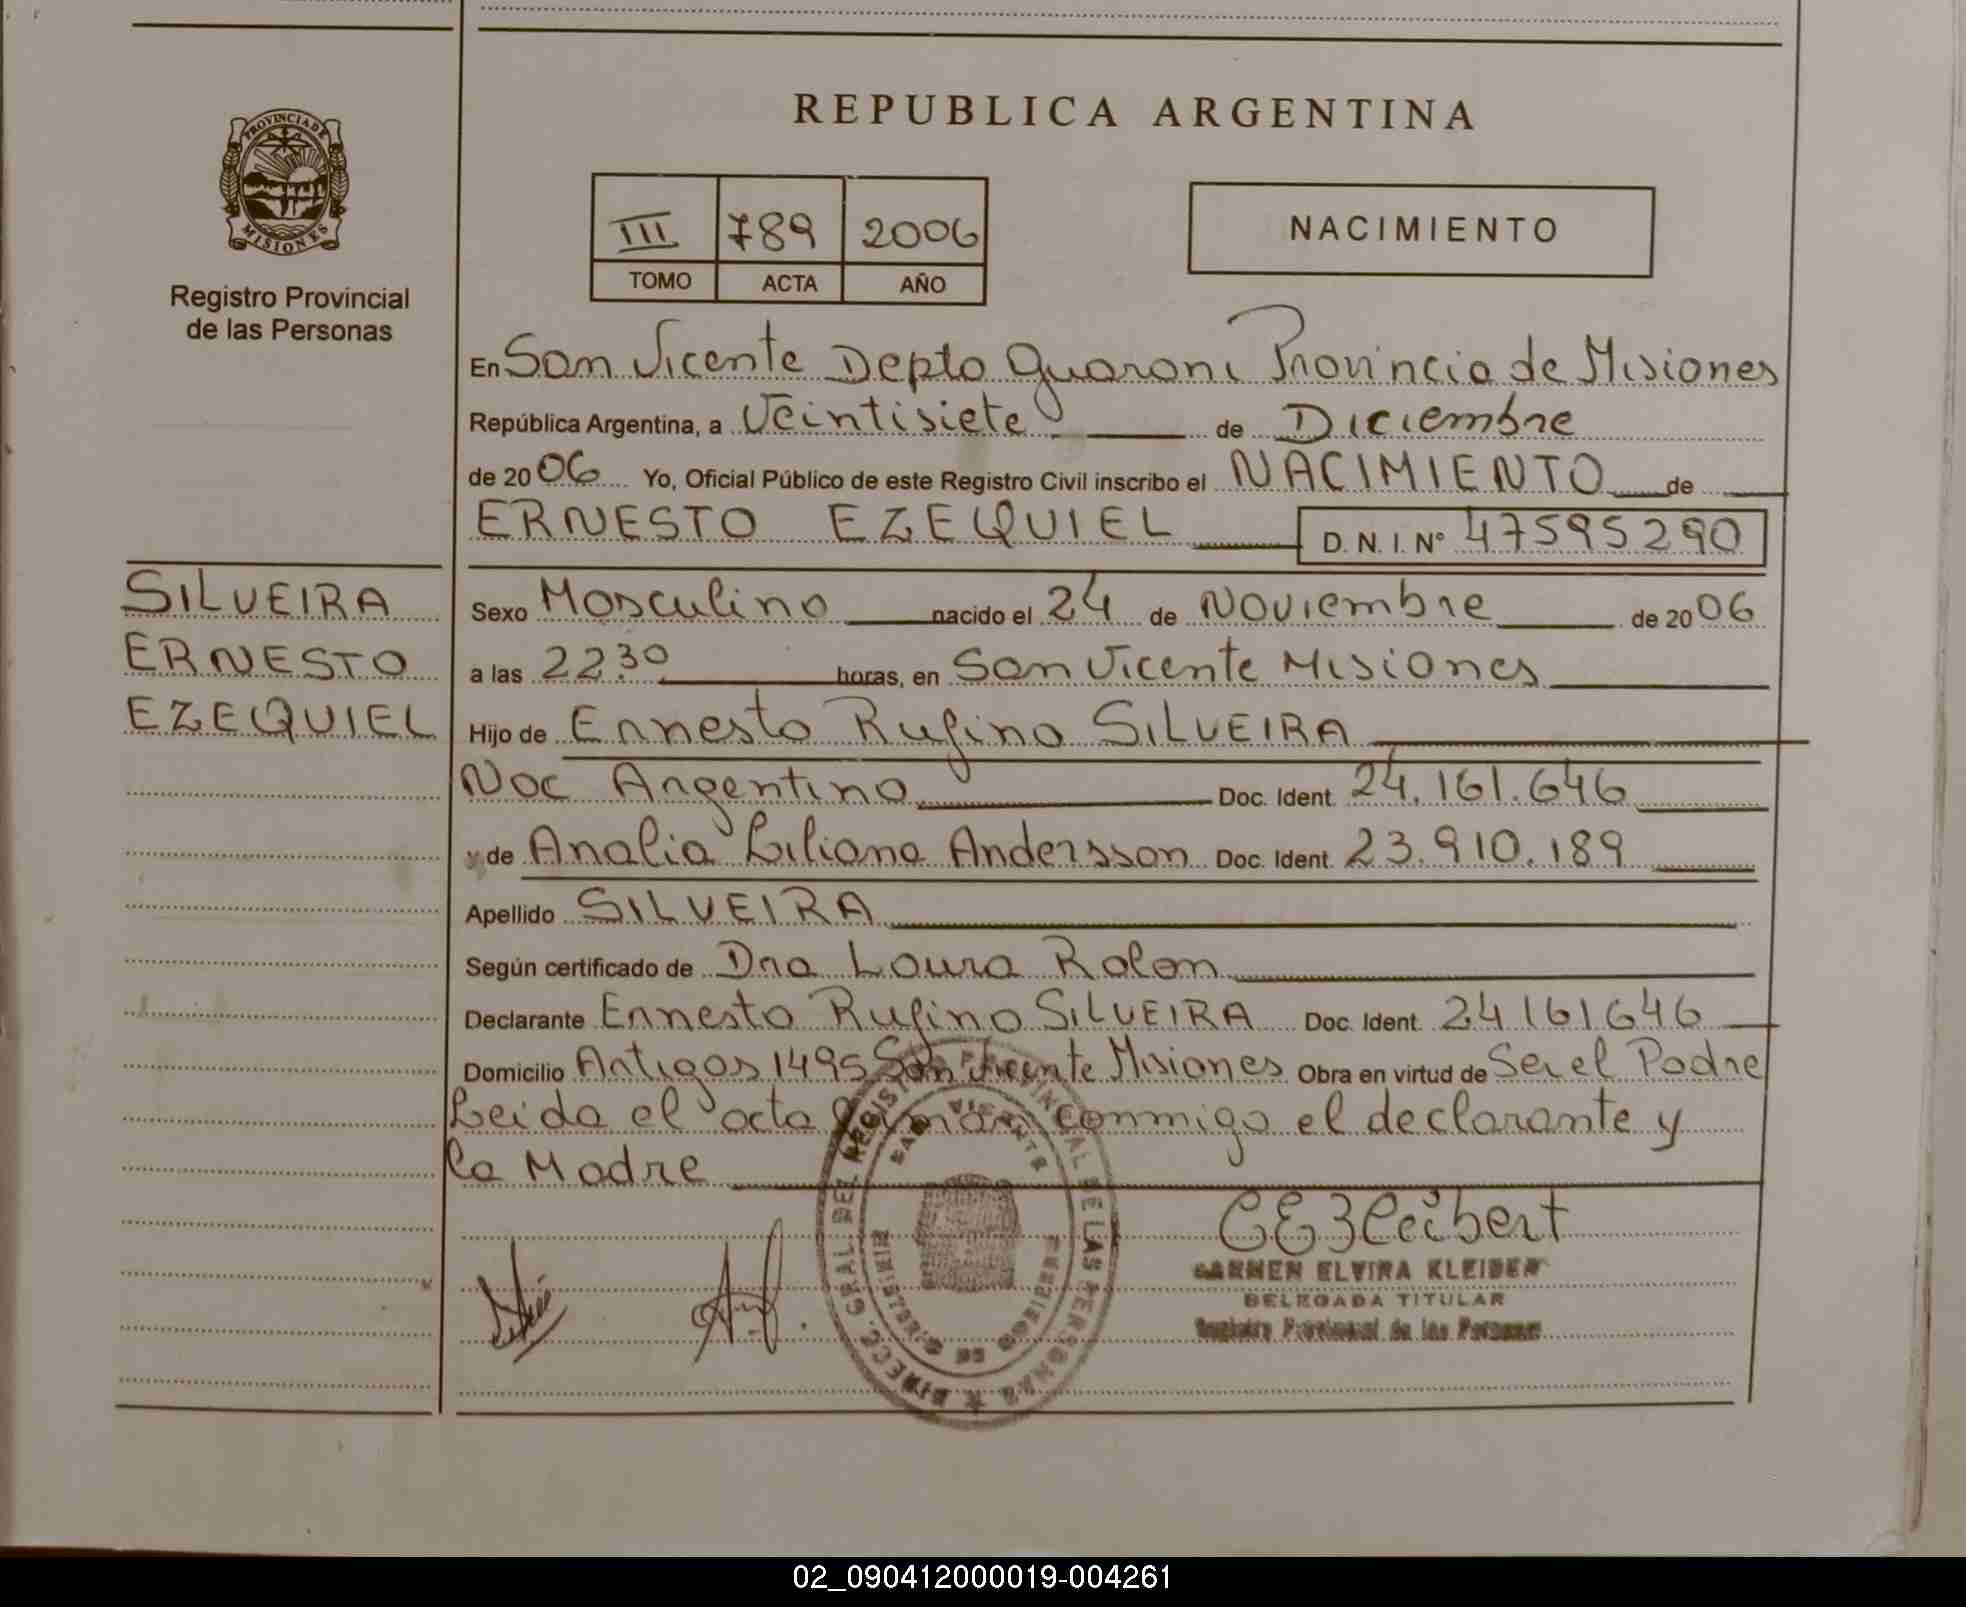 REPUBLICA ARGENTINA
PROVINCIA DE
MISIONES
Registro Provincial
de las Personas
III 789 2006
TOMO ACTA AÑO
NACIMIENTO
En San Vicente Depto Guarani Provincia de Misiones
República Argentina, a Veintisiete de Diciembre
de 2006 Yo, Oficial Público de este Registro Civil inscribo el NACIMIENTO de
ERNESTO EZEQUIEL D. N. I. Nº 47595290
SILVEIRA
ERNESTO
EZEQUIEL
Sexo Masculino nacido el 24 de Noviembre de 2006
a las 22:30 horas, en San Vicente Misiones
Hijo de Ernesto Rufino SILVEIRA
Nac Argentino Doc. Ident. 24.161.646
y de Analia Liliana Andersson Doc. Ident. 23.910.189
Apellido SILVEIRA
Según certificado de Dra Laura Rolon
Declarante Ernesto Rufino SILVEIRA Doc. Ident. 24161646
Domicilio Artigas 1495 San Vicente Misiones Obra en virtud de Ser el Padre
Leida el acta firman conmigo el declarante y
la Madre
DIRECC. GRAL. DEL REGISTRO PROVINCIAL DE LAS PERSONAS
VICENTE
MISIONES
CARMEN ELVIRA KLEIBER
DELEGADA TITULAR
Registro Provincial de las Personas
02_090412000019-004261